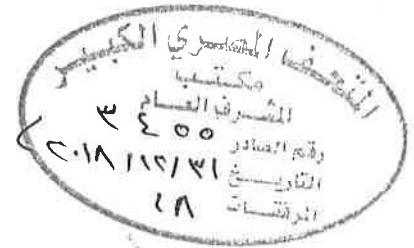 المتحف المصري الكبير
مكتب
المشرف العام
رقم الصادر ٣٤٥٥
التاريخ ٣١ / ١٢ / ٢٠١٨
المرفقات ٤٨